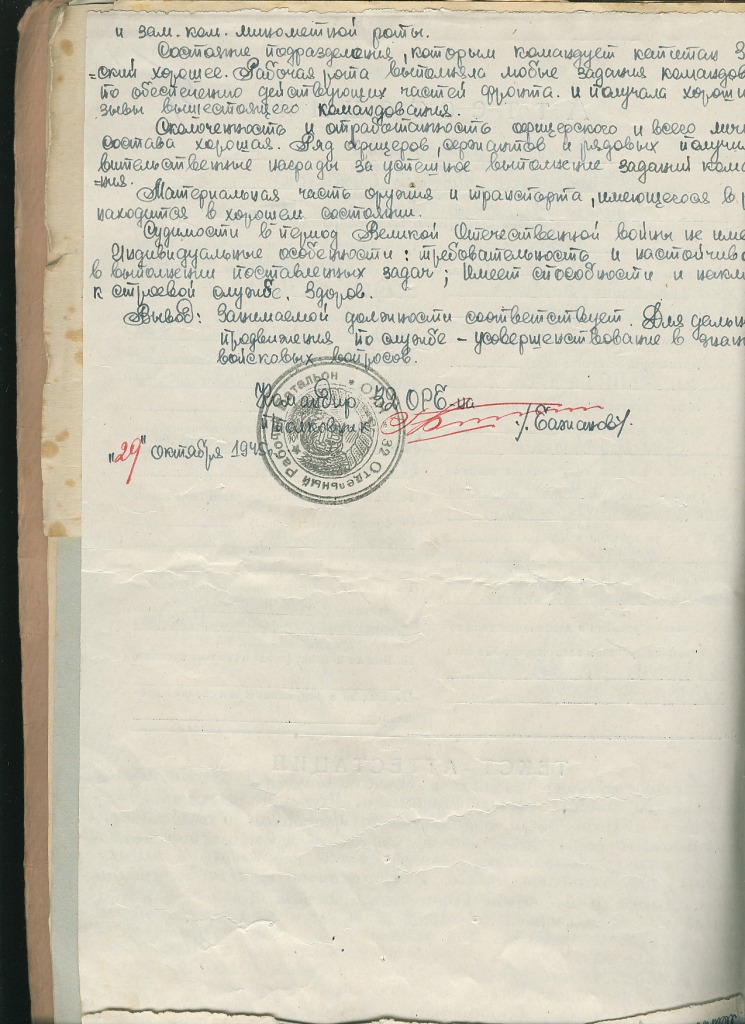 и зам. ком. минометной роты.
Состояние подразделения, которым командует капитан З
=ский хорошее. Рабочая рота выполняла любые задания командов
по обеспечению действующих частей фронта. и получала хороши
зывы вышестоящего командования.
Сколоченность и отработанность офицерского и всего личн
состава хорошая. Ряд офицеров, сержантов и рядовых получи
вительственные награды за успешное выполнение заданий кома
=ния.
Материальная часть оружия и транспорта, имеющегося в р
находится в хорошем состоянии.
Судимости в период Великой Отечественной войны не име
Индивидуальные особенности: требовательность и настойчиво
в выполнении поставленных задач; Имеет способности и накло
к строевой службе. Здоров.
Вывод: Занимаемой должности соответствует. Для дальн
продвижения по службе – усовершенствование в знан
войсковых вопросов.
Командир 32 ОРБ-на
Полковник /Бажанов/.
"29" октября 1945г.
32 Отдельный Рабочий Батальон
ТЕКСТ АТТЕСТАЦИИ